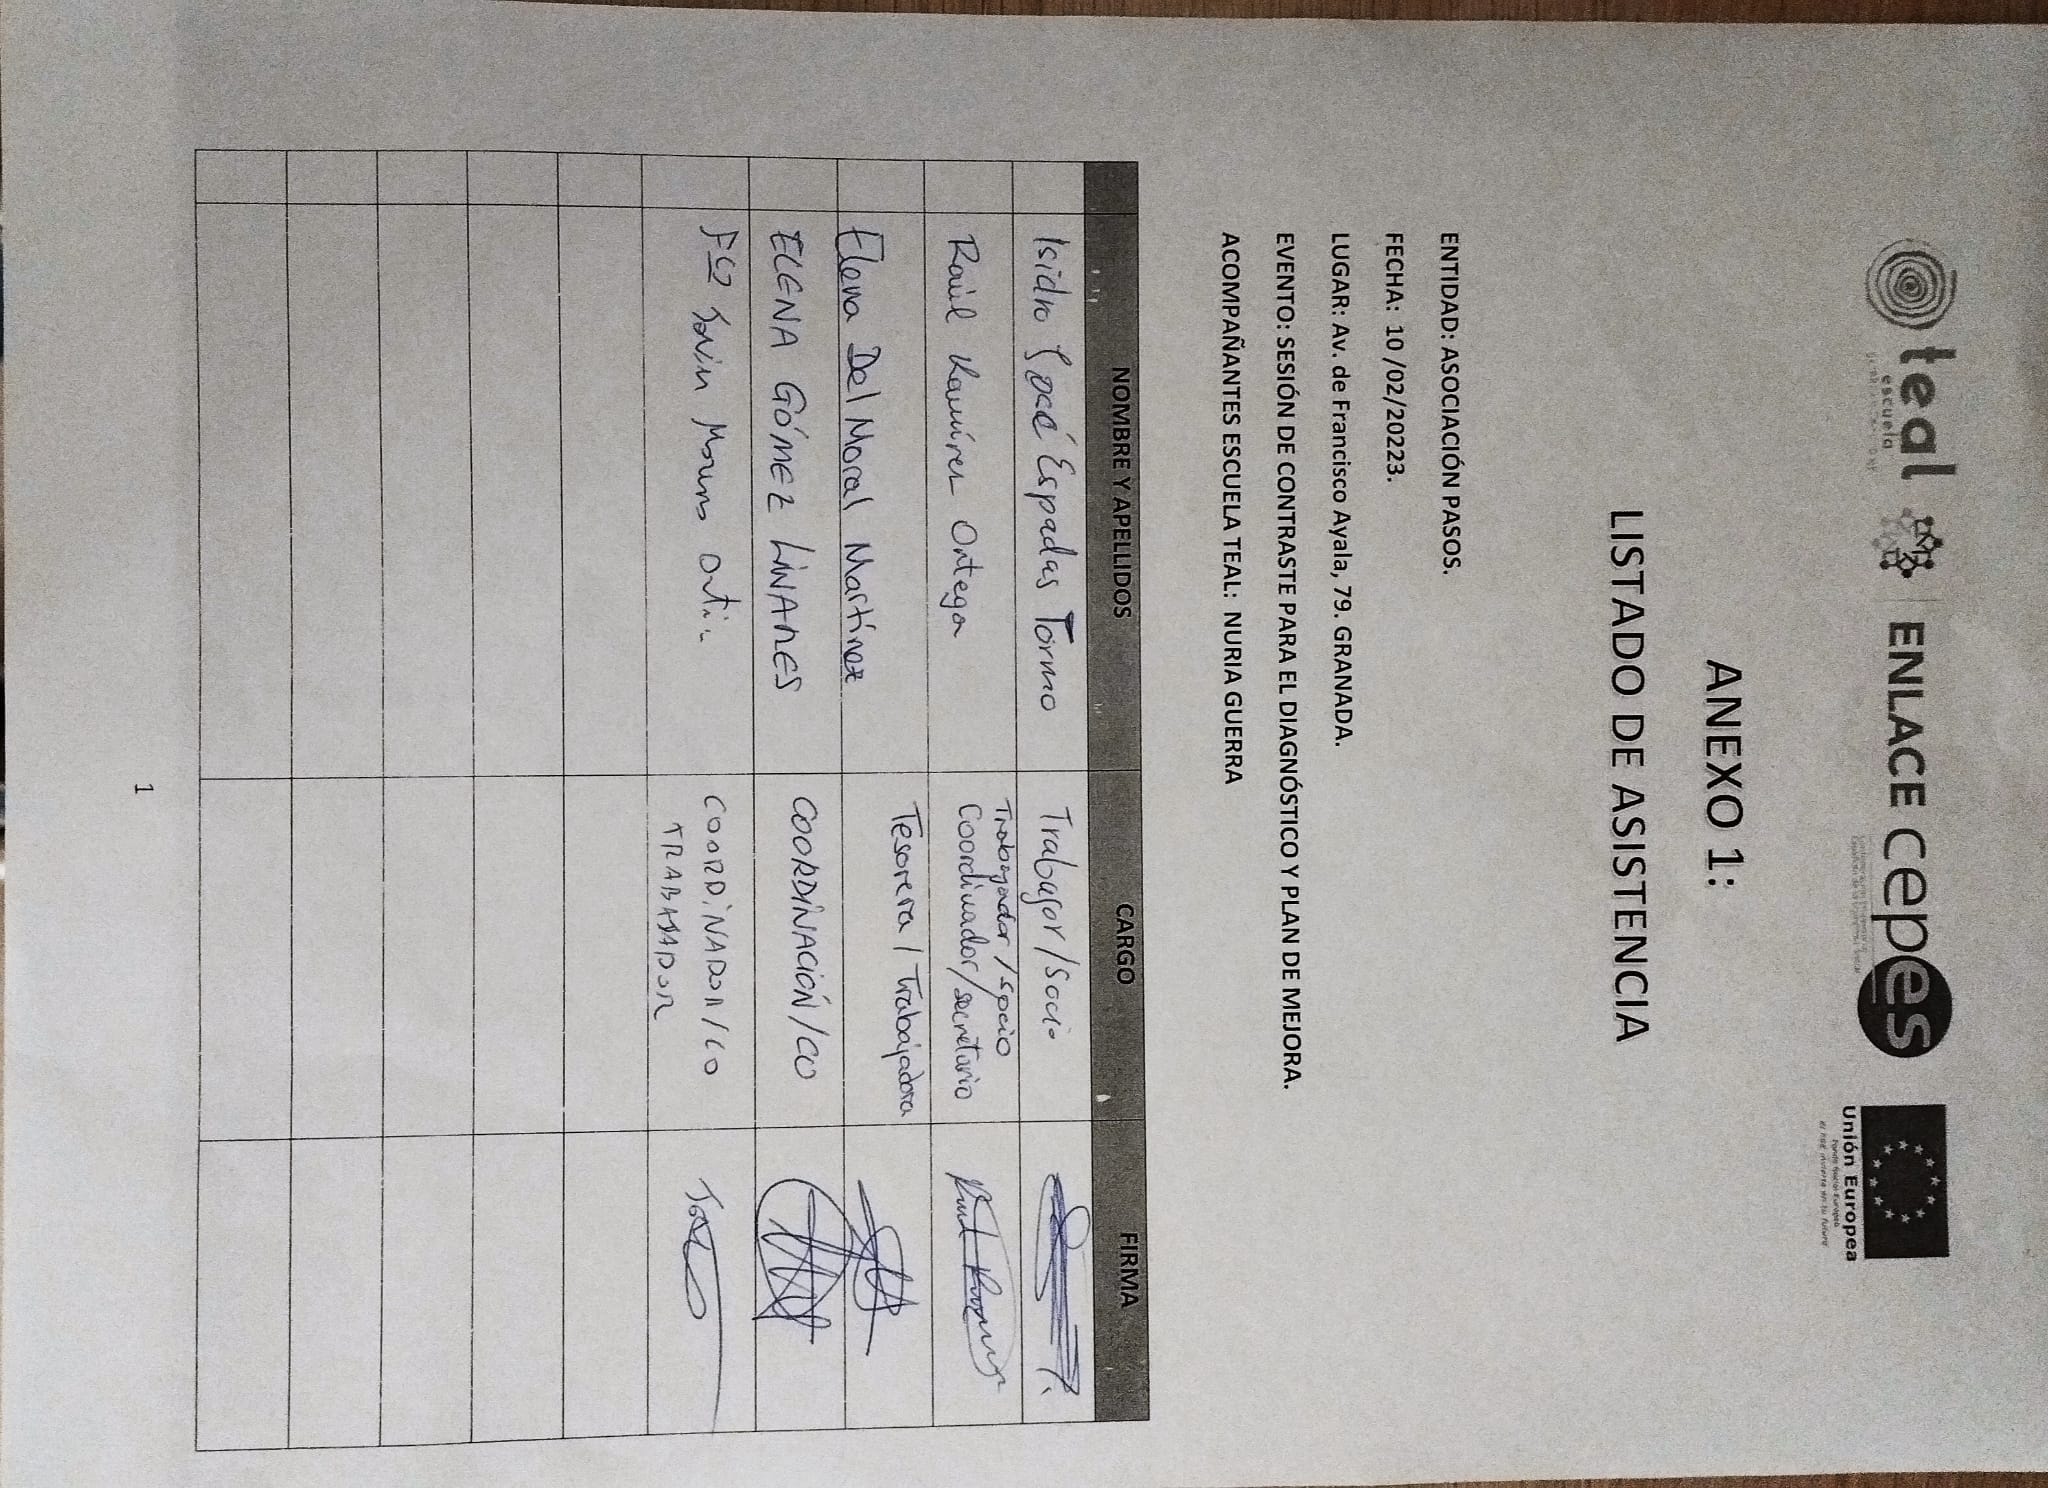 teal
escuela
ENLACE cepes
Unión Europea
Fondo Social Europeo
ANEXO 1:
LISTADO DE ASISTENCIA
ENTIDAD: ASOCIACIÓN PASOS.
FECHA: 10 /02/20223.
LUGAR: Av. de Francisco Ayala, 79. GRANADA.
EVENTO: SESIÓN DE CONTRASTE PARA EL DIAGNÓSTICO Y PLAN DE MEJORA.
ACOMPAÑANTES ESCUELA TEAL: NURIA GUERRA
NOMBRE Y APELLIDOS CARGO FIRMA
Isidro José Espadas Tormo Trabajor/Socio
Raúl Ramírez Ortega Trabajador/socio
Coordinador/secretario
Elena Del Moral Martínez Tesorera/Trabajadora
ELENA GÓMEZ LINARES COORDINACIÓN/CO
Fco Moreno COORDINADOR/CO
TRABAJADOR
1